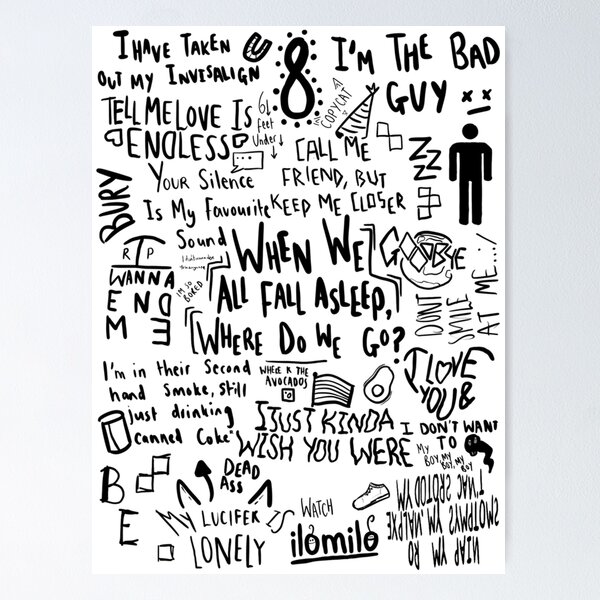 I HAVE TAKEN
OUT MY INVISALIGN
8
I'M THE BAD
GUY
TELL ME LOVE IS
ENDLESS
6
feet
Under
COPYCAT
CALL ME
FRIEND, BUT
KEEP ME CLOSER
YOUR Silence
Is My Favourite
Sound
BURY
R P
WANNA
END
ME
I'M SO
BORED
WHEN WE
ALL FALL ASLEEP,
WHERE DO WE GO?
GOODBYE
DONT
SMILE
AT ME
I'm in their Second
hand Smoke, Still
just drinking
canned Coke
WHERE R THE
AVOCADOS
I LOVE
YOU &
I DON'T WANT
TO
I JUST KINDA
WISH YOU WERE
MY
BOY, MY
BOY, MY
BOY
DEAD
ASS
BE
MY LUCIFER IS
LONELY
WATCH
ilomilo
MY DOCTORS CANT
EXPLAIN MY SYMPTOMS
OR MY PAIN